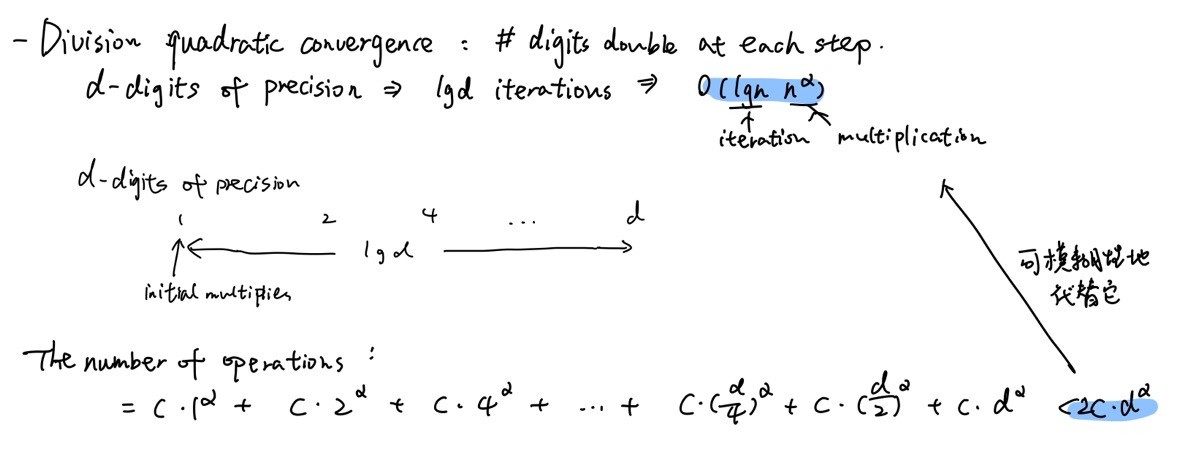 - Division quadratic convergence : # digits double at each step.
d-digits of precision ⇒ lgd iterations ⇒ O(lgn n^α)
iteration multiplication
d-digits of precision
1 2 4 ... d
lgd
initial multiplies
可模糊性地
代替它
The number of operations :
= C·1^α + C·2^α + C·4^α + ... + C·(d/4)^α + C·(d/2)^α + C·d^α <2C·d^α